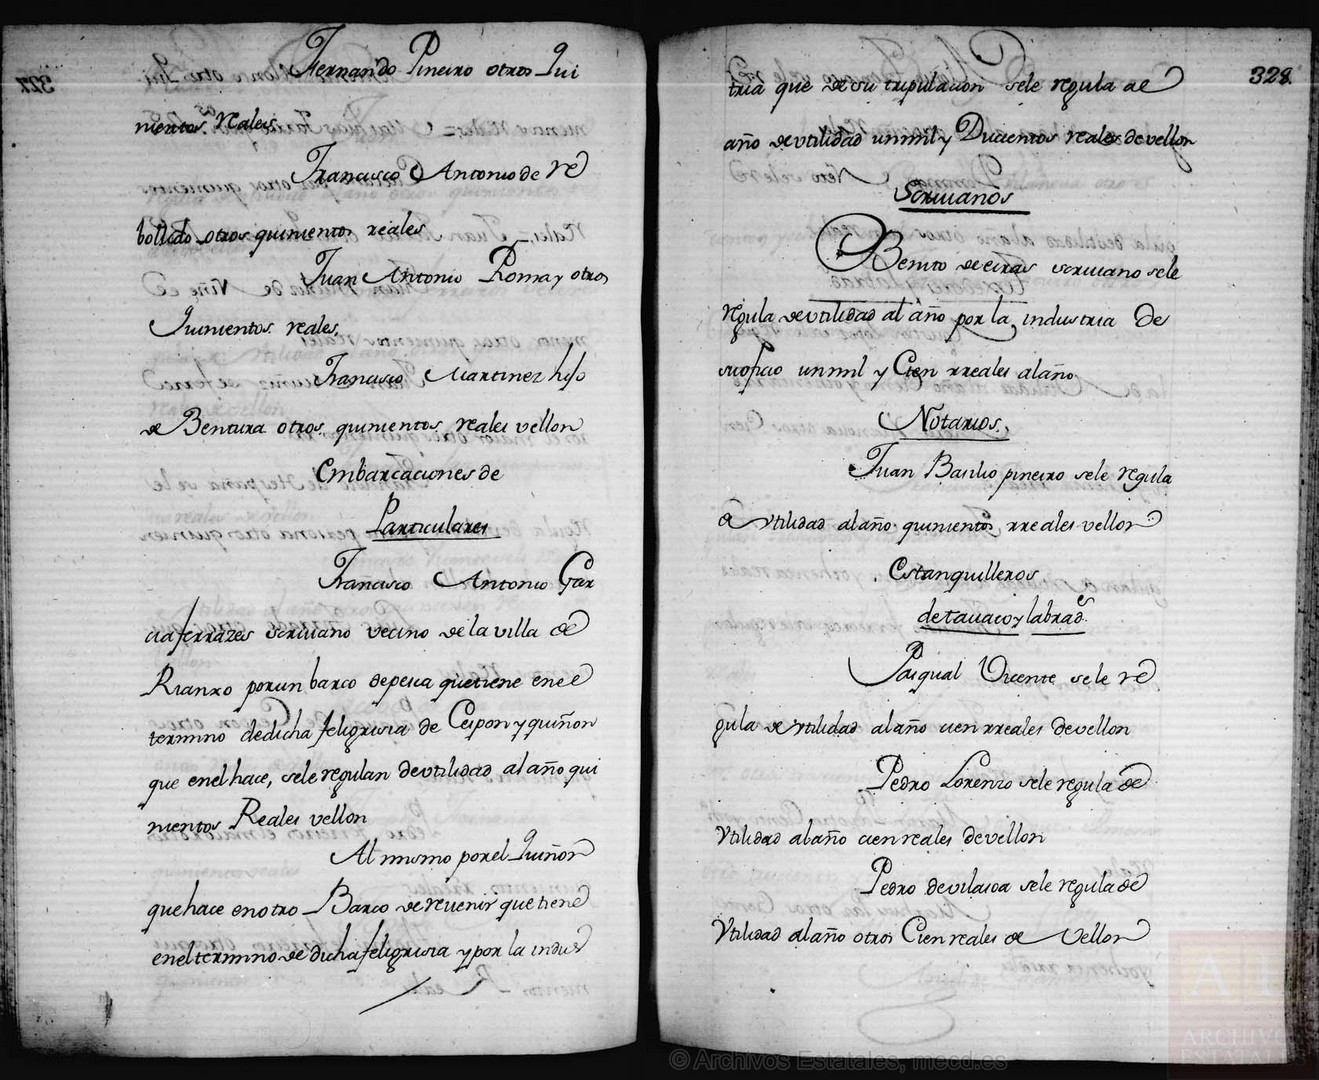 Fernando Pineiro otros Qui
nientos reales
Francisco Antonio de Re
bollido otros quinientos reales
Juan Antonio Roma y otros
Quinientos reales
Francisco Martinez hijo
de Bentura otros quinientos reales vellon
Embarcaciones de
Particulares
Francisco Antonio Gar
cia ferrazes scriuano vecino de la villa de
Rianxo por un barco de pesca que tiene en el
termino de dicha feligresia de Cespon y quiñon
que en el hace, se le regulan de vtilidad al año qui
nientos Reales vellon
Al mismo por el Quiñon
que hace en otro Barco de reuenir que tiene
en el termino de dicha feligresia y por la indus
328
tria que de su tripulacion se le regula al
año de vtilidad un mil y Ducientos reales de vellon
Scriuanos
Benito de eiras scriuano se le
regula de vtilidad al año por la industria de
su oficio un mil y Cien rreales al año
Notarios.
Juan Basilio pineiro se le regula
de vtilidad al año quinientos rreales vellon
Estanquilleros
de tauaco y labrads.
Pasqual Vicente se le re
gula de vtilidad al año cien rreales de vellon
Pedro Lorenzo se le regula de
Vtilidad al año cien reales de vellon
Pedro de vilasoa se le regula de
Vtilidad al año otros Cien reales de Vellon
© Archivos Estatales, mecd.es
ARCHIVOS
ESTATALES